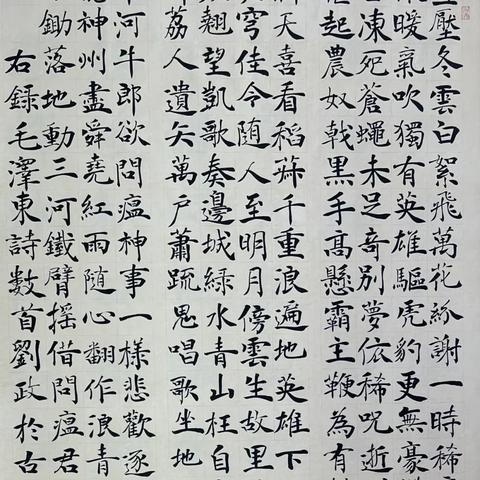 壓冬雲白絮飛萬花紛謝一時稀
暖氣吹獨有英雄驅虎豹更無豪
凍死蒼蠅未足奇別夢依稀咒逝
起農奴戟黑手高懸霸主鞭為有
天喜看稻菽千重浪遍地英雄下
穹佳令隨人至明月傍雲生故里
翹望凱歌奏邊城綠水青山枉自
荔人遺矢萬戶蕭疏鬼唱歌坐地
河牛郎欲問瘟神事一樣悲歡逐
神州盡舜堯紅雨隨心翻作浪青
鋤落地動三河鐵臂搖借問瘟君
右録毛澤東詩數首劉政於古